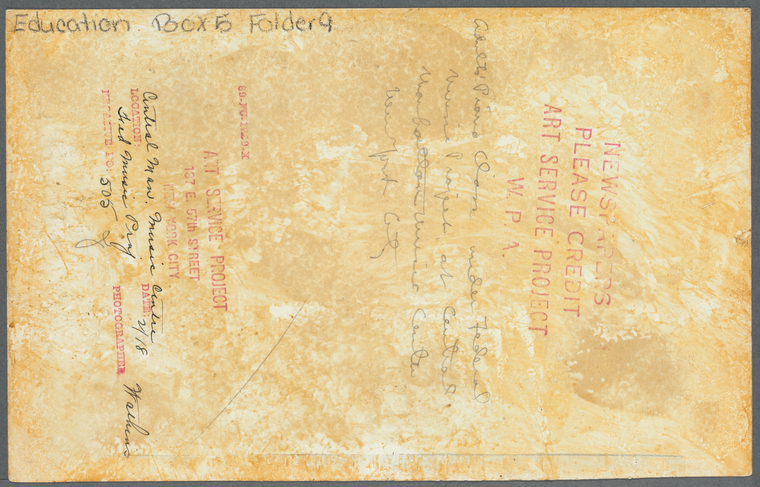 Education Box 5 Folder 9
NEWSPAPERS
PLEASE CREDIT
ART SERVICE PROJECT
W. P. A.
Adults Piano Class under Federal
Music Project at Central
Manhattan Music Center
New York City
ART SERVICE PROJECT
137 E. 57th STREET
NEW YORK CITY
Central Man. Music Centre
LOCATION: DATE: 2/18
Fed Music Proj
NEGATIVE NO: 505 PHOTOGRAPHER Watkins